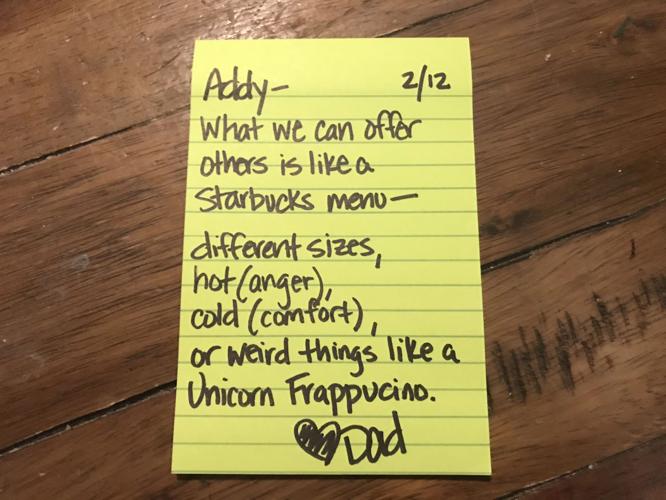 Addy- 2/12
What we can offer
others is like a
Starbucks menu-
different sizes,
hot (anger),
cold (comfort),
or weird things like a
Unicorn Frappucino.
♥ Dad